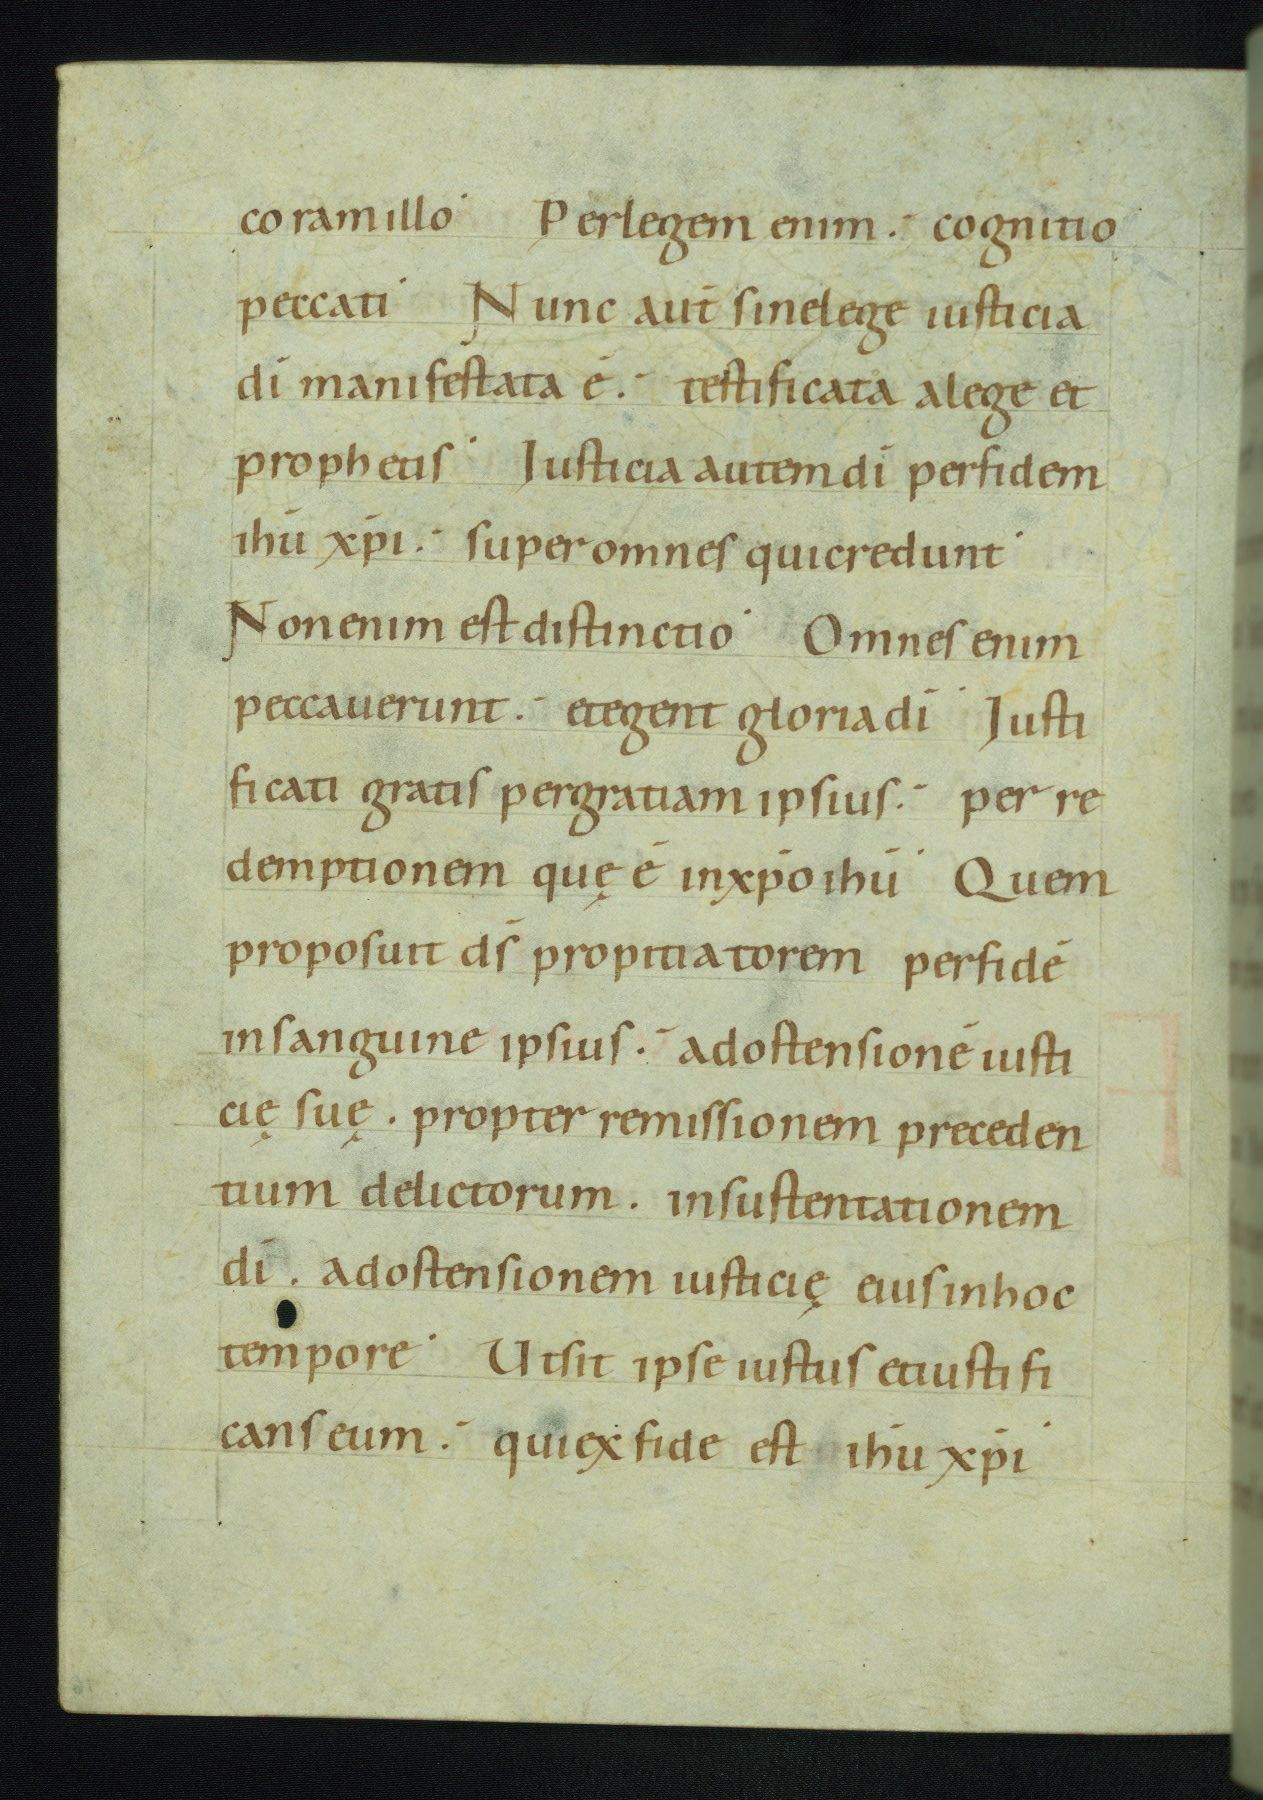 coramillo· Perlegem enim.- cognitio
peccati· Nunc aut̄ sinelege iusticia
dī manifestata ē.- testificata alege et
prophetis· Iusticia autem dī perfidem
ihū xp̄i.- super omnes quicredunt·
Nonenim est distinctio· Omnes enim
peccauerunt.- etegent gloria dī· Justi
ficati gratis pergratiam ipsius.- per re
demptionem quę ē inxp̄o ihū· Quem
proposuit ds̄ propitiatorem perfidē
insanguine ipsius.- adostensionē iusti
cię suę. propter remissionem preceden
tium delictorum. insustentationem
dī. adostensionem iusticię eius inhoc
tempore· Utsit ipse iustus etiustifi
cans eum.- quiex fide est ihū xp̄i·